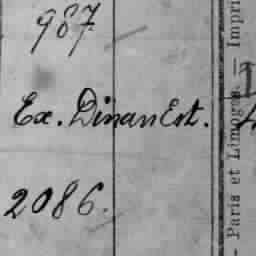 987
Ex. Dinan Est.
2086.
- Paris et Limoges. — Impri